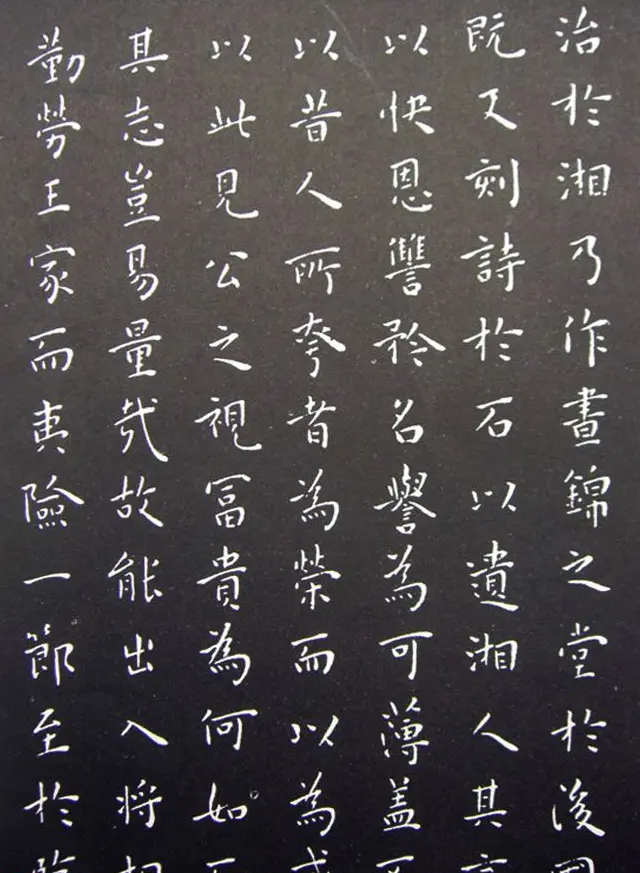 治於湘乃作晝錦之堂於後
既又刻詩於石以遺湘人其
以快恩讐矜名譽為可薄盖
以昔人所夸者為榮而以為
以此見公之視冨貴為何如
其志豈易量哉故能出入將
勤勞王家而夷險一節至於